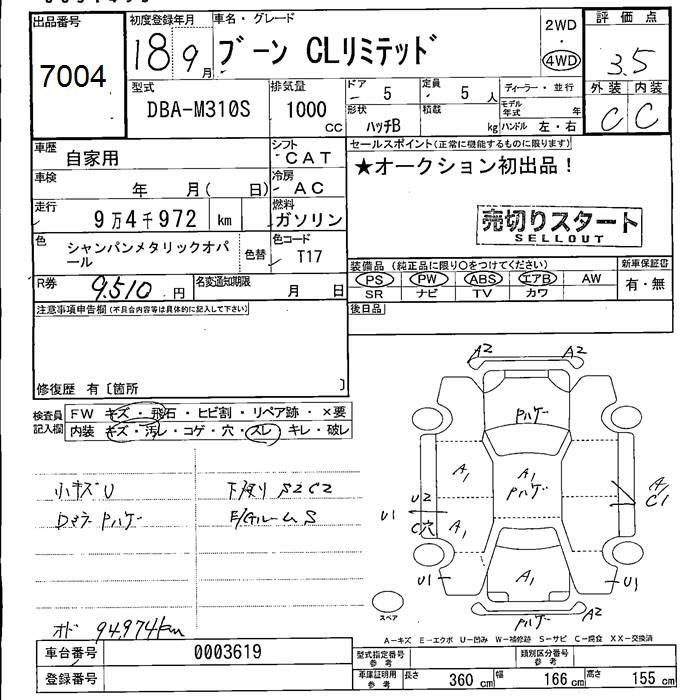 出品番号
7004
初度登録年月
18年 9月
車名・グレード
ブーン CLリミテッド
2WD
・
4WD
評価点
3.5
外装 内装
C C
型式
DBA-M310S
排気量
1000
CC
ドア
5
定員
5 人
形状
ハッチB
積載
kg
ディーラー・並行
モデル年式 年
ハンドル 左・右
車歴
自家用
シフト
CAT
車検
年 月( 日)
冷房
AC
走行
9万4千972 km
燃料
ガソリン
色
シャンパンメタリックオパール
色替
色コード
T17
R券
9,510 円
名変通知期限
月 日
セールスポイント(正常に機能するものに限ります)
★オークション初出品!
売切りスタート
SELLOUT
装備品(純正品に限り○をつけてください)
PS PW ABS エアB AW
SR ナビ TV カワ
新車保証書
有・無
後日品
注意事項申告欄(不具合内容等は具体的に記入して下さい)
修復歴 有〔箇所 〕
検査員記入欄
FW キズ・飛石・ヒビ割・リペア跡・×要
内装 キズ・汚レ・コゲ・穴・スレ・キレ・破レ
小キズU
下廻り S2C2
Dミラー Pハゲ
E/GルームS
オド 94,974km
A2 A2
Pハゲ
A1
A1
Pハゲ
U2
U1
C穴
A1
A
C1
U1
A1
U1
Pハゲ
スペア
A2
A2
A-キズ E-エクボ U-凹み W-補修跡 S-サビ C-腐食 XX-交換済
車台番号
0003619
登録番号
型式指定番号
参考
類別区分番号
参考
車庫証明用
参考
長さ 360 cm 幅 166 cm 高さ 155 cm